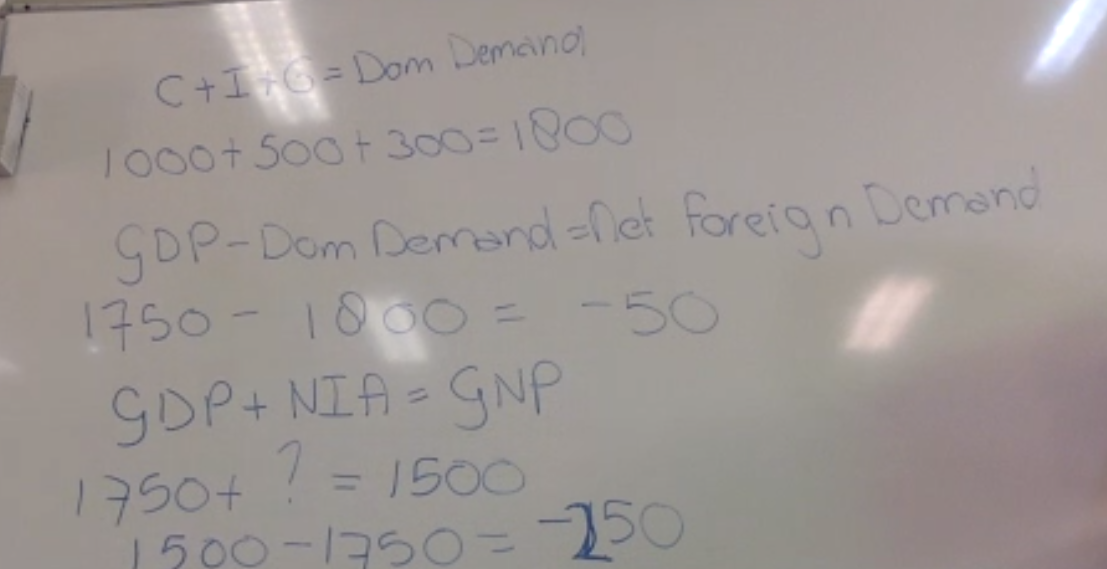 C+I+G = Dom Demand
1000+500+300=1800
GDP-Dom Demand=net foreign Demand
1750 - 1800 = -50
GDP+ NIA = GNP
1750+ ? = 1500
1500-1750= -250